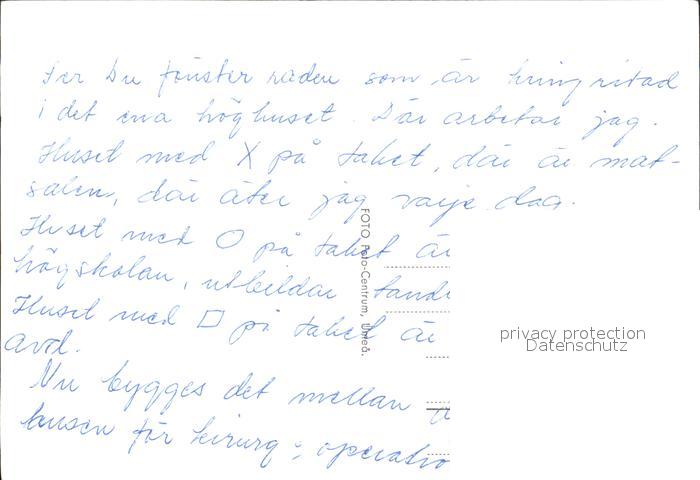 Ser Du fönster raden som är kring ritad
i det ena höghuset. Där arbetar jag.
Huset med X på taket, där är mat-
salen, där äter jag varje dag.
Huset med O på taket är
högskolan, utbildar tandl
Huset med □ på taket är
avd.
Nu bygges det mellan
husen för kirurg-, operatio
FOTO: Foto-Centrum, Umeå.
privacy protection
Datenschutz